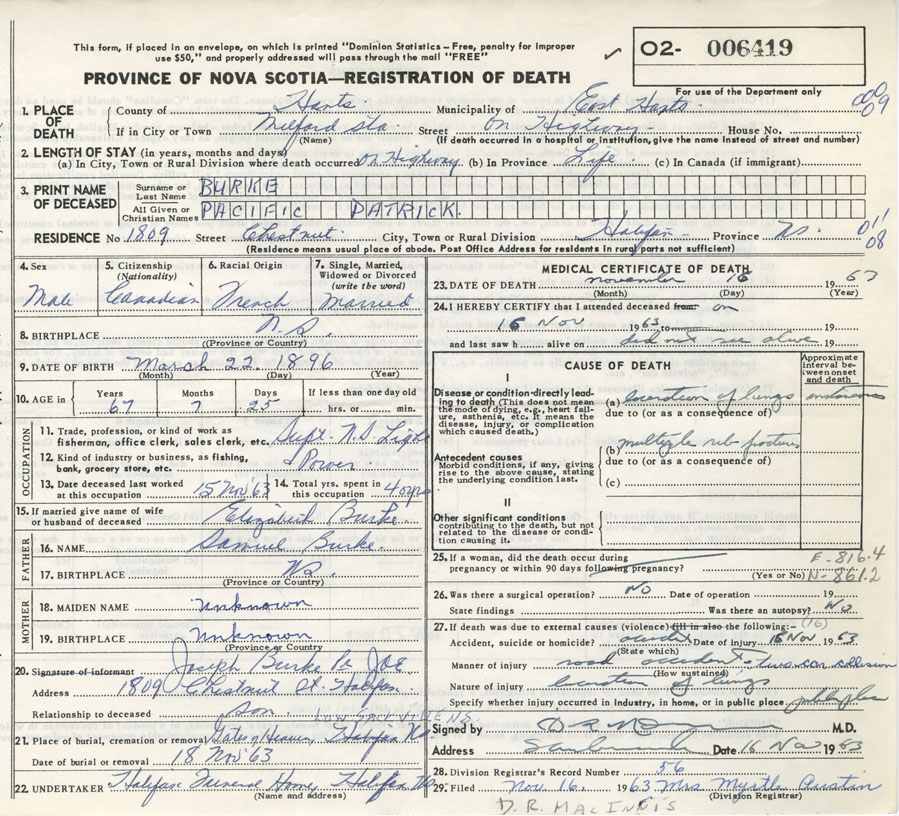 This form, if placed in an envelope, on which is printed "Dominion Statistics—Free, penalty for improper
use $50," and properly addressed will pass through the mail "FREE"
✓ O2- 006419
PROVINCE OF NOVA SCOTIA—REGISTRATION OF DEATH
For use of the Department only
1. PLACE OF DEATH
County of Hants Municipality of East Hants
09
If in City or Town Milford Sta. Street On Highway House No.
(Name) (If death occurred in a hospital or institution, give the name instead of street and number)
2. LENGTH OF STAY (in years, months and days)
(a) In City, Town or Rural Division where death occurred On Highway (b) In Province Life (c) In Canada (if immigrant)
3. PRINT NAME OF DECEASED
Surname or Last Name BURKE
All Given or Christian Names PACIFIC PATRICK.
RESIDENCE No 1809 Street Chestnut City, Town or Rural Division Halifax Province NS.
(Residence means usual place of abode. Post Office Address for residents in rural parts not sufficient)
08
4. Sex
Male
5. Citizenship
(Nationality)
Canadian
6. Racial Origin
French
7. Single, Married,
Widowed or Divorced
(write the word)
Married
8. BIRTHPLACE N.S
(Province or Country)
9. DATE OF BIRTH March 22 1896
(Month) (Day) (Year)
10. AGE in Years Months Days If less than one day old
67 7 25 hrs. or min.
OCCUPATION
11. Trade, profession, or kind of work as
fisherman, office clerk, sales clerk, etc. Supt. N.S Light
12. Kind of industry or business, as fishing,
bank, grocery store, etc. & Power
13. Date deceased last worked
at this occupation 15 Nov '63
14. Total yrs. spent in
this occupation 40 yrs
15. If married give name of wife
or husband of deceased Elizabeth Burke
FATHER
16. NAME Samuel Burke
17. BIRTHPLACE NS.
(Province or Country)
MOTHER
18. MAIDEN NAME Unknown
19. BIRTHPLACE Unknown
(Province or Country)
20. Signature of informant Joseph Burke
Address 1809 Chestnut St. Halifax.
Relationship to deceased son
LOW SACKVILLE N S.
21. Place of burial, cremation or removal Gates of Heaven, Halifax NS
Date of burial or removal 18 Nov '63
22. UNDERTAKER Halifax Funeral Home, Halifax NS
(Name and address)
MEDICAL CERTIFICATE OF DEATH
23. DATE OF DEATH november 16 1963
(Month) (Day) (Year)
24. I HEREBY CERTIFY that I attended deceased from on
16 Nov 1963 to 19
and last saw h alive on did not see alive 19
CAUSE OF DEATH
Approximate
interval be-
tween onset
and death
I
Disease or condition directly lead-
ing to death (This does not mean
the mode of dying, e.g., heart fail-
ure, asthenia, etc. It means the
disease, injury, or complication
which caused death.)
(a) laceration of lungs
due to (or as a consequence of)
Antecedent causes
Morbid conditions, if any, giving
rise to the above cause, stating
the underlying condition last.
(b) multiple rib fractures
due to (or as a consequence of)
(c)
II
Other significant conditions
contributing to the death, but not
related to the disease or condi-
tion causing it.
25. If a woman, did the death occur during
pregnancy or within 90 days following pregnancy?
(Yes or No)
E-816.4
N-861.2
26. Was there a surgical operation? NO Date of operation 19
State findings Was there an autopsy? NO
27. If death was due to external causes (violence) fill in also the following:- (16)
Accident, suicide or homicide? accident Date of injury 16 Nov 1963
(State which)
Manner of injury road accident - two car collision
(How sustained)
Nature of injury laceration of lungs
Specify whether injury occurred in industry, in home, or in public place public place
Signed by M.D.
Address Date 16 Nov 1963
28. Division Registrar's Record Number 56
29. Filed Nov. 16. 1963 Mrs Myrtle Austin
(Division Registrar)
D.R. MACINNIS